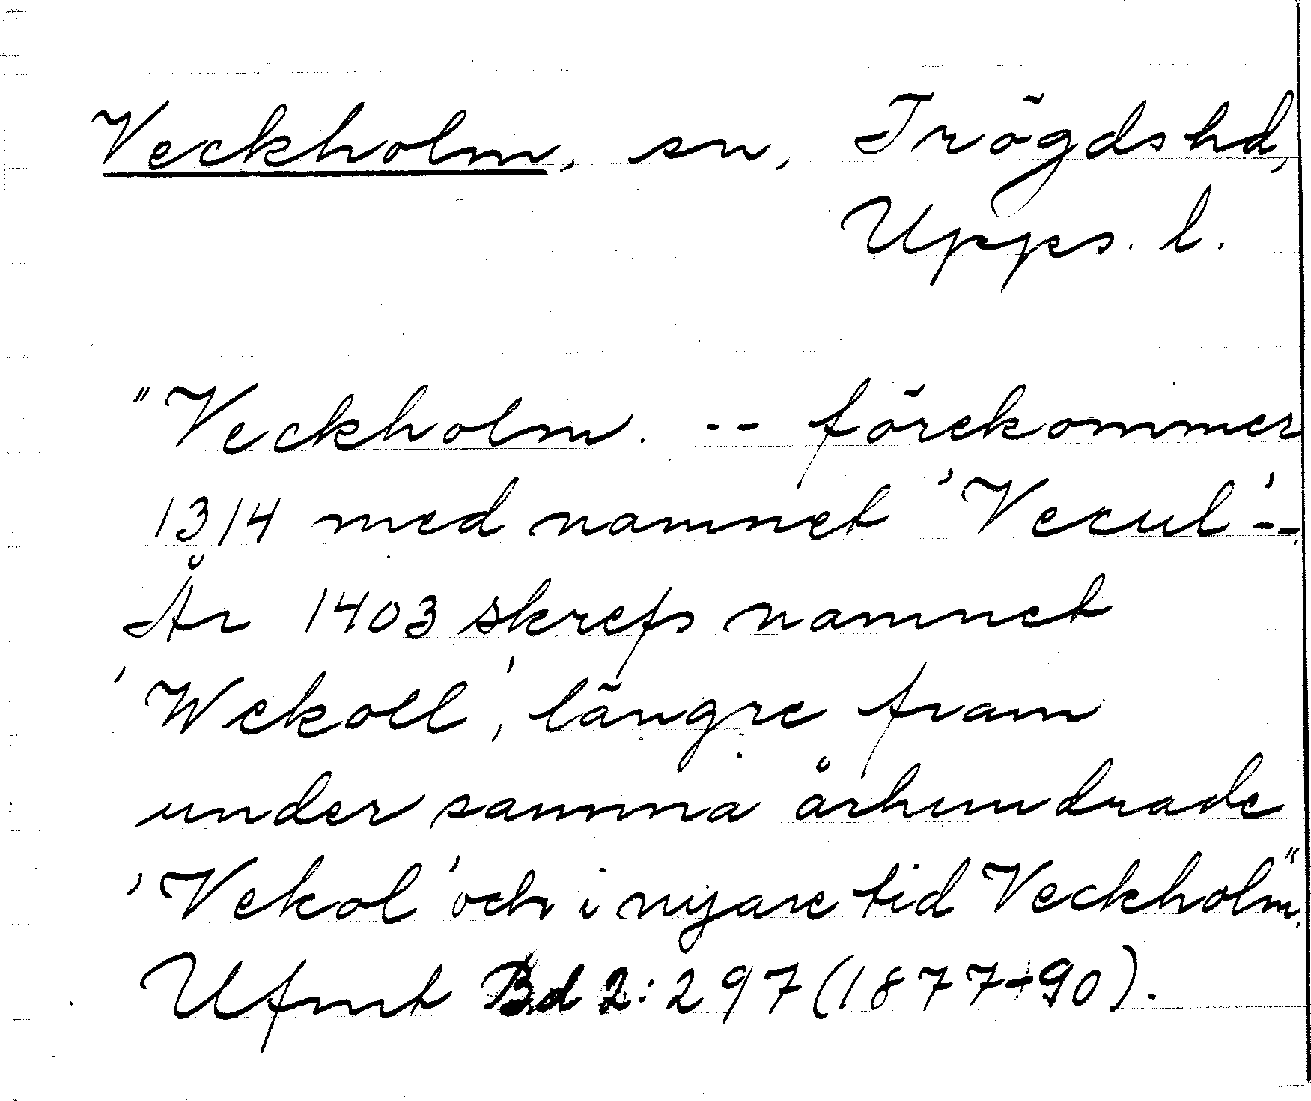 Veckholm, sn, Trögds hd,
Upps. l.
"Veckholm. -- förekommer
1314 med namnet 'Vecul' --.
År 1403 skrefs namnet
'Wekoll', längre fram
under samma århundrade
'Vekol' och i nyare tid Veckholm".
Ufmt Bd 2: 297 (1877-90).